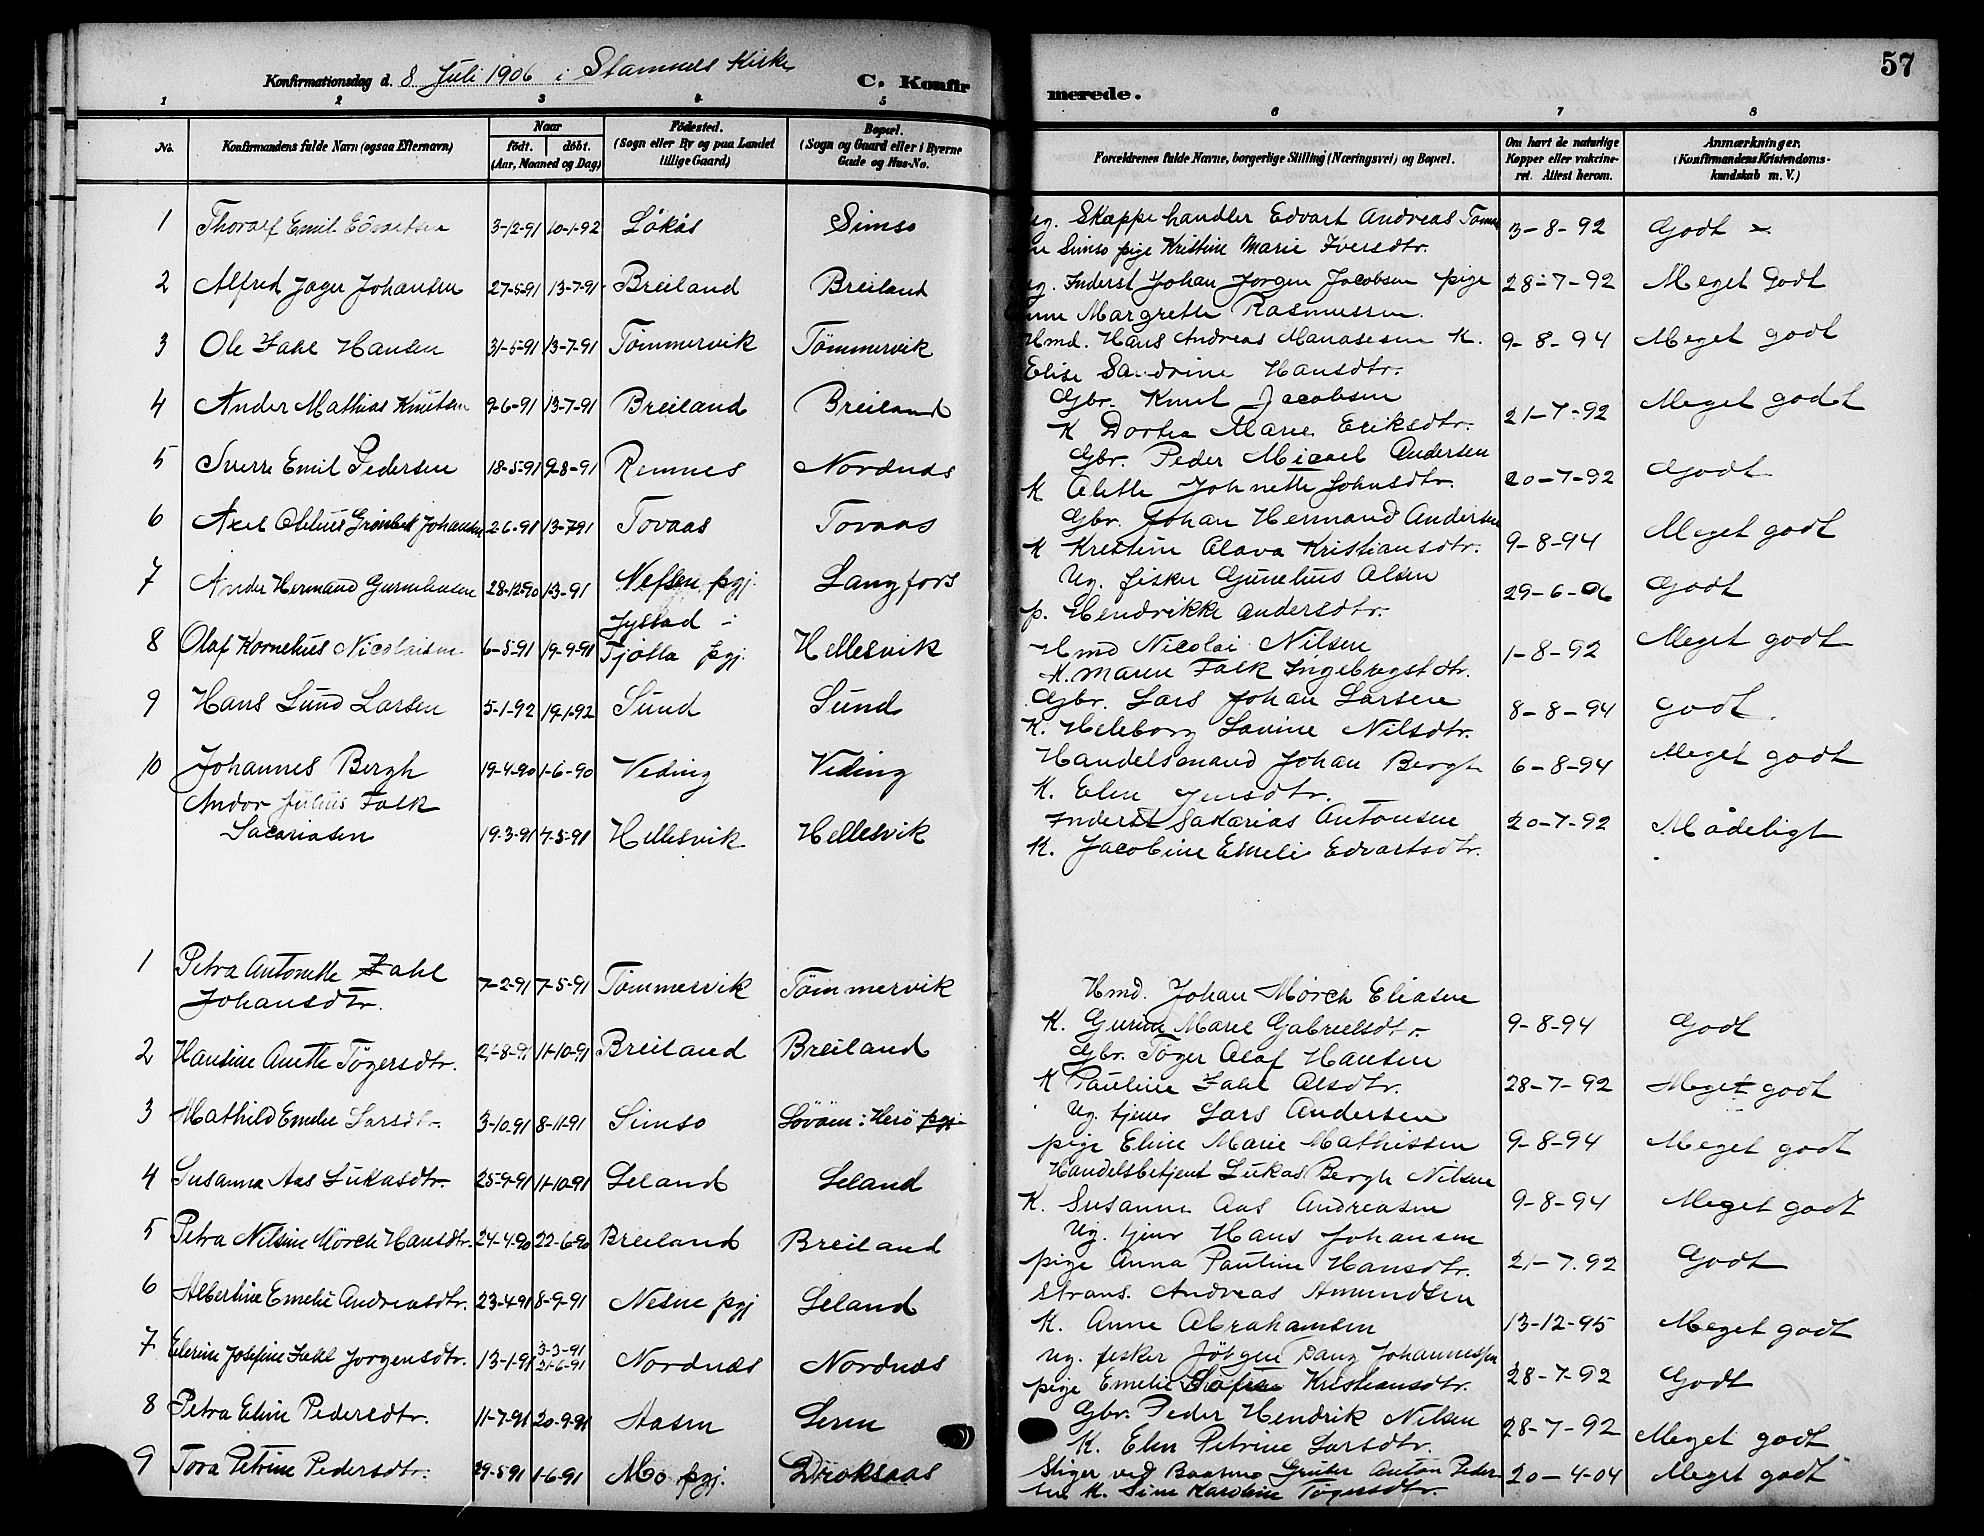 Konfirmationsdag d. 8 Juli 1906 i Stamnes Kirke
C. Konfirmerede.
57
1 2 3 4 5 6 7 8
No. Konfirmandens fulde Navn (ogsaa Efternavn) Naar födt. döbt. (Aar, Maaned og Dag) Födested. (Sogn eller By og paa Landet tillige Gaard) Bopæl. (Sogn og Gaard eller i Byerne Gade og Hus-No. Forældrenes fulde Navne, borgerlige Stilling (Næringsvei) og Bopæl. Om havt de naturlige Kopper eller vakcineret. Attest herom. Anmærkninger. (Konfirmandens Kristendomskundskab m. V.)
1 Thoralf Emil 3-12-91 10-1-92 Løkås Simsø Ug. Skappehandler Edvart Andreas
Simsø pige Kristine Marie Iversdtr. 3-8-92 Godt
2 Alfred Jager Johansen 27-5-91 13-7-91 Breiland Breiland Ug. Inderst Johan Jørgen Jacobsen pige
Margrethe Rasmussen. 28-7-92 Meget Godt
3 Ole Zahl Hansen 31-5-91 13-7-91 Tömmervik Tömmervik Hmd. Hans Andreas Manasesen K.
Elise Sandrine Hansdtr. 9-8-94 Meget godt
4 Ander Mathias Knutsen 9-6-91 13-7-91 Breiland Breiland Gbr. Knut Jacobsen
K Dortea Marie Eriksdtr. 21-7-92 Meget godt
5 Sverre Emil Pedersen 18-5-91 9-8-91 Remnes Nordnæs Gbr. Peder Micael Andersen
K Alette Johnette Johnsdtr. 20-7-92 Godt
6 Axel Johansen 2-6-91 13-7-91 Tovaas Tovaas Gbr. Johan Hermand Andersen
K Kristine Olava Kristiansdtr. 9-8-94 Meget godt
7 Ander Hermand 28-12-90 1-3-91 Nefsen pgj. Langfors Ug. fisker Olsen
p. Hendrikke Andersdtr. 29-6-06 Godt
8 Olaf Kornelius Nicolaisen 6-5-91 19-9-91 Jystad i
Tjötta pgj. Hellesvik Hmd Nicolai Nilsen
K. Maren Falk 1-8-92 Meget godt
9 Hans Lund Larsen 5-1-92 19-1-92 Sund Sund Gbr. Lars Johan Larsen
K. Heleborg Lovine Nilsdtr. 8-8-94 godt.
10 Johannes Bergh 19-4-90 1-6-90 Veding Veding Handelsmand Johan Bergh
K. Elen Jensdtr. 6-8-94 Meget godt
Andor Julius Falk
Sacariasen 19-3-91 7-5-91 Hellesvik Hellesvik Inderst Sakarias Antonsen
K. Jacobine Emeli Edvartsdtr. 20-7-92 Mådeligt
1 Petra Antonette Zahl
Johansdtr. 7-2-91 7-5-91 Tömmervik Tömmervik Hmd. Johan Mörch Eliasen
K. Marie Gabrielsdtr. 9-8-94 Godt
2 Hansine Anette Tögersdtr. 21-8-91 11-10-91 Breiland Breiland Gbr. Töger Olaf Hansen
K Pauline Zahl Olsdtr. 28-7-92 Meget godt
3 Mathild Emelie Larsdtr. 3-10-91 8-11-91 Simsø Herö pgj. Ug. tjener Lars Andersen
pige Eline Marie Mathissen 9-8-94 Meget godt
4 Susanna Aas Lukasdtr. 25-9-91 11-10-91 Leland Leland Handelsbetjent Lukas Bergh Nilsen
K. Susanne Aas Andreasen 9-8-94 Meget godt
5 Petra Nilsine Mörch Hansdtr. 24-4-90 22-6-90 Breiland Breiland Ug. tjener Hans Johansen
pige Anna Pauline Hansdtr. 21-7-92 Godt
6 Albertine Emelie Andreasdtr. 23-4-91 8-9-91 Nesne pgj Leland Strans. Andreas Amundsen
K. Anne Abrahamsen 13-12-95 Meget godt
7 Elerine Josefine Zahl Jorgensdtr. 13-1-91 3-3-91
21-6-91 Nordnæs Nordnæs Ug. fisker Jörgen Danz Johannessen
pige Emelie Sofie Kristiansdtr. 28-7-92 Godt
8 Petra Eline Pedersdtr. 11-7-91 20-9-91 Aasen Leren Gbr. Peder Hendrik Nilsen
K. Elen Petrine Larsdtr. 28-7-92 Meget godt
9 Tora Petrine Pedersdtr. 29-5-91 1-6-91 Mo pgj. Stiger ved Gruber Anton Pedersen
K. Sine Karoline Tögersdtr. 20-4-04 Meget godt